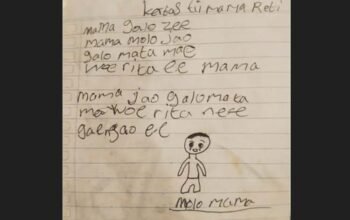 kertas tii mama Reti
mama galo zee
mama molo jao
galo mata mae
woe rita ee mama
mama jao galo mata
mawoe rita nese
ec
molo mama